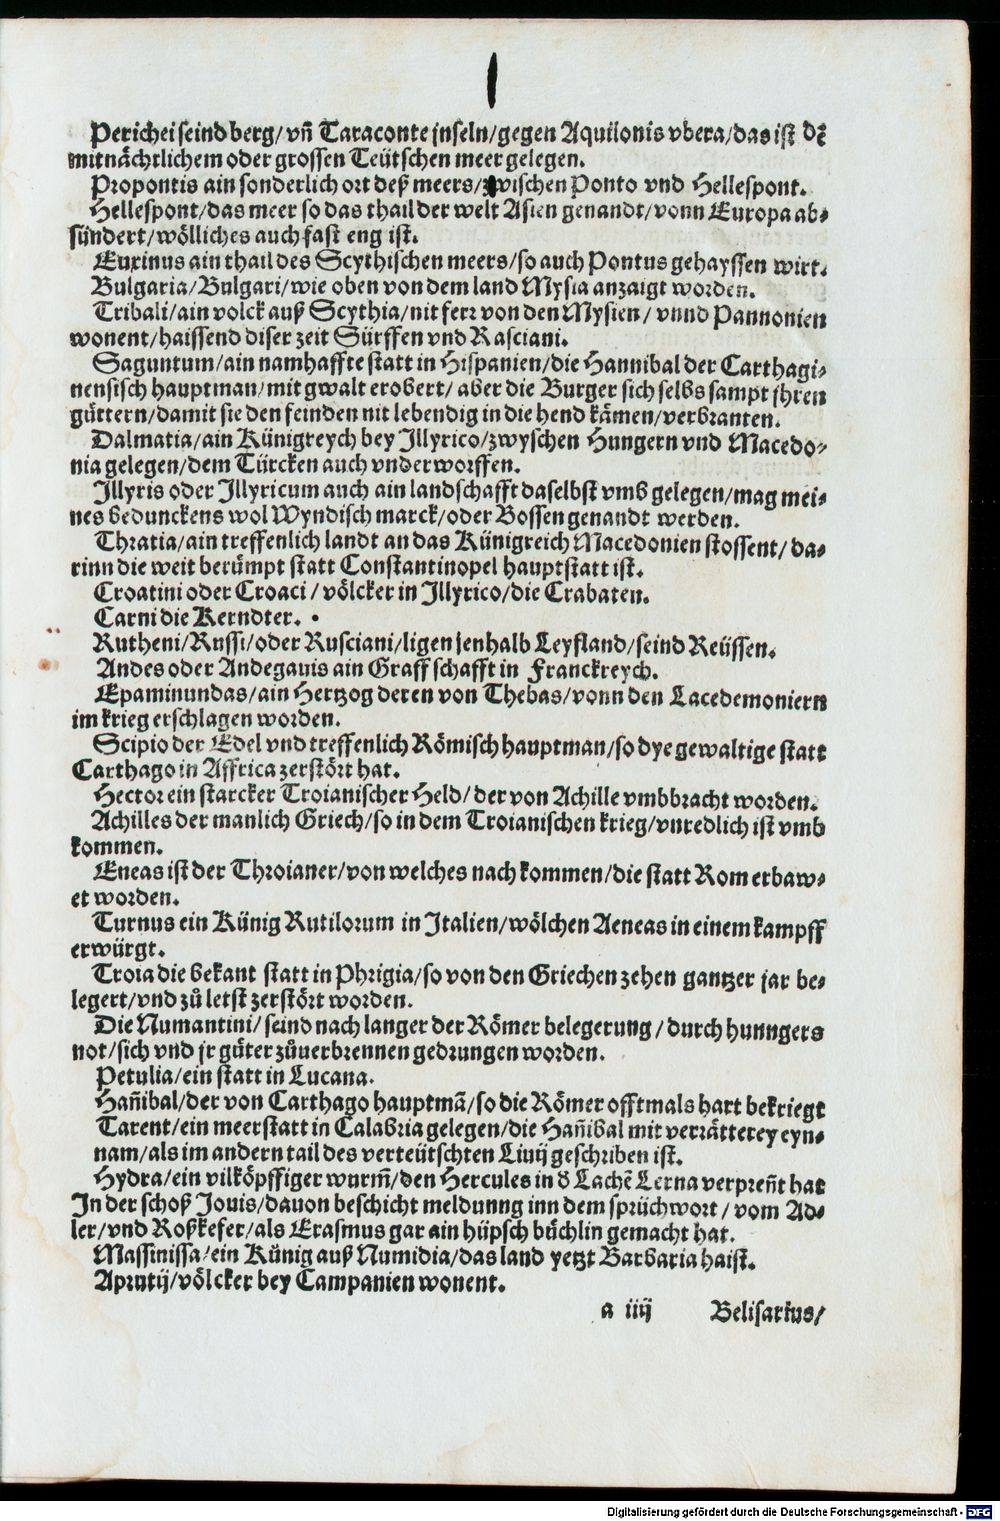 Perichei seind berg/ vñ Taraconte jnseln/ gegen Aquilonis vbera/ das ist dẽ
mitnächtlichem oder grossen Teütschen meer gelegen.
Propontis ain sonderlich ort deß meers/ zwischen Ponto vnd Hellespont.
Hellespont/ das meer so das thail der welt Asien genandt/ vonn Europa ab⸗
sündert/ wölliches auch fast eng ist.
Euxinus ain thail des Scythischen meers/ so auch Pontus gehayssen wirt.
Bulgaria/ Bulgari/ wie oben von dem land Mysia anzaigt worden.
Tribali/ ain volck auß Scythia/ nit ferr von den Mysien/ vnnd Pannonien
wonent/ haissend diser zeit Sürffen vnd Rasciani.
Saguntum/ ain namhaffte statt in Hispanien/ die Hannibal der Carthagi⸗
nensisch hauptman/ mit gwalt erobert/ aber die Burger sich selbs sampt jhren
güttern/ damit sie den feinden nit lebendig in die hend kämen/ verbranten.
Dalmatia/ ain Künigreych bey Jllyrico/ zwyschen Hungern vnd Macedo⸗
nia gelegen/ dem Türcken auch vnderworffen.
Jllyris oder Jllyricum auch ain landschafft daselbst vmb gelegen/ mag mei⸗
nes bedunckens wol Wyndisch marck/ oder Bossen genandt werden.
Thratia/ ain treffenlich landt an das Künigreich Macedonien stossent/ da⸗
rinn die weit berümpt statt Constantinopel hauptstatt ist.
Croatini oder Croaci/ völcker in Jllyrico/ die Crabaten.
Carni die Kerndter.
Rutheni/ Russi/ oder Rusciani/ ligen jenhalb Leyfland/ seind Reüssen.
Andes oder Andegauis ain Graffschafft in Franckreych.
Epaminundas/ ain Hertzog deren von Thebas/ vonn den Lacedemoniern
im krieg erschlagen worden.
Scipio der Edel vnd treffenlich Römisch hauptman/ so dye gewaltige statt
Carthago in Affrica zerstört hat.
Hector ein starcker Troianischer Held/ der von Achille vmbbracht worden.
Achilles der manlich Griech/ so in dem Troianischen krieg/ vnredlich ist vmb
kommen.
Eneas ist der Throianer/ von welches nachkommen/ die statt Rom erbaw⸗
et worden.
Turnus ein Künig Rutilorum in Jtalien/ wölchen Aeneas in einem kampff
erwürgt.
Troia die bekant statt in Phrigia/ so von den Griechen zehen gantzer jar be⸗
legert/ vnd zů letst zerstört worden.
Die Numantini/ seind nach langer der Römer belegerung/ durch hunngers
not/ sich vnd jr güter zůuerbrennen gedrungen worden.
Petulia/ ein statt in Lucana.
Hañibal/ der von Carthago hauptmã/ so die Römer offtmals hart bekriegt
Tarent/ ein meerstatt in Calabria gelegen/ die Hañibal mit verrätterey eyn⸗
nam/ als im andern tail des verteütschten Liuij geschriben ist.
Hydra/ ein vilköpffiger wurm̃/ den Hercules in ď Lachẽ Lerna verpreñt hat
Jn der schoß Jouis/ dauon beschicht meldunng inn dem sprüchwort/ vom Ad⸗
ler/ vnd Roßkefer/ als Erasmus gar ain hüpsch büchlin gemacht hat.
Massinissa/ ein Künig auß Numidia/ das land yetzt Barbaria haist.
Aprutij/ völcker bey Campanien wonent.
a iiij Belisarius/
Digitalisierung gefördert durch die Deutsche Forschungsgemeinschaft - DFG